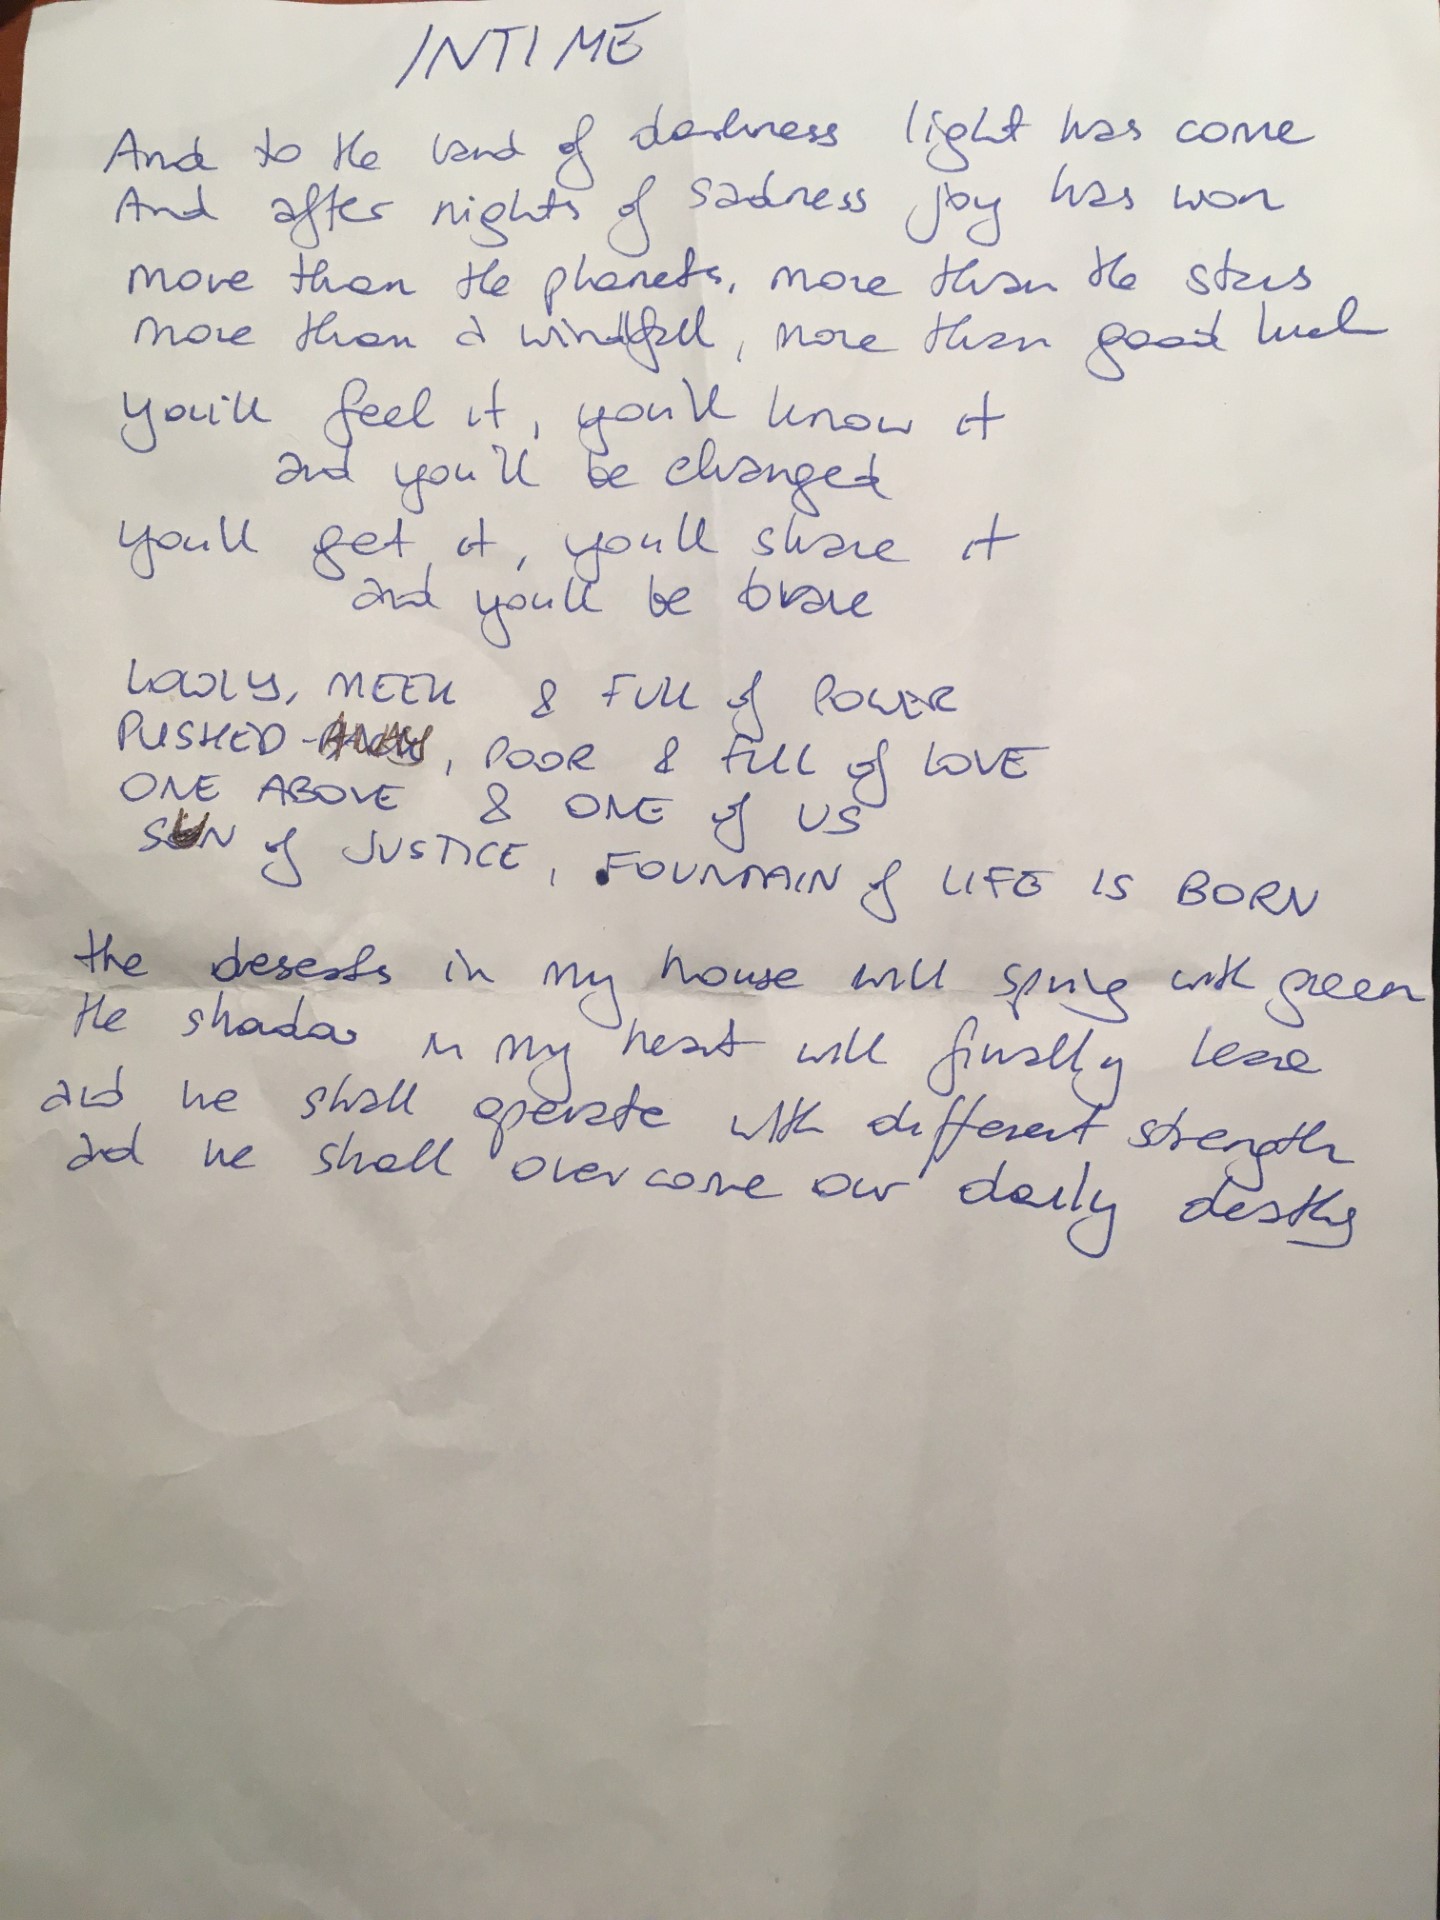 INTIME
And to the land of darkness light has come
And after nights of sadness joy has won
more than the planets, more than the stars
more than a windfall, more than good luck
you'll feel it, you'll know it
and you'll be changed
you'll get it, you'll share it
and you'll be brave
LOWLY, MEEK & FULL of POWER
PUSHED-AWAY, POOR & FULL of LOVE
ONE ABOVE & ONE of US
SUN of JUSTICE, FOUNTAIN of LIFE IS BORN
the deserts in my house will spring with green
the shadow in my heart will finally leave
and we shall operate with different strength
and we shall overcome our daily deaths